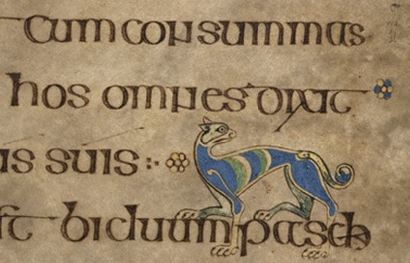 cum consummas
hos omnes dixit
us suis
st biduum pasch